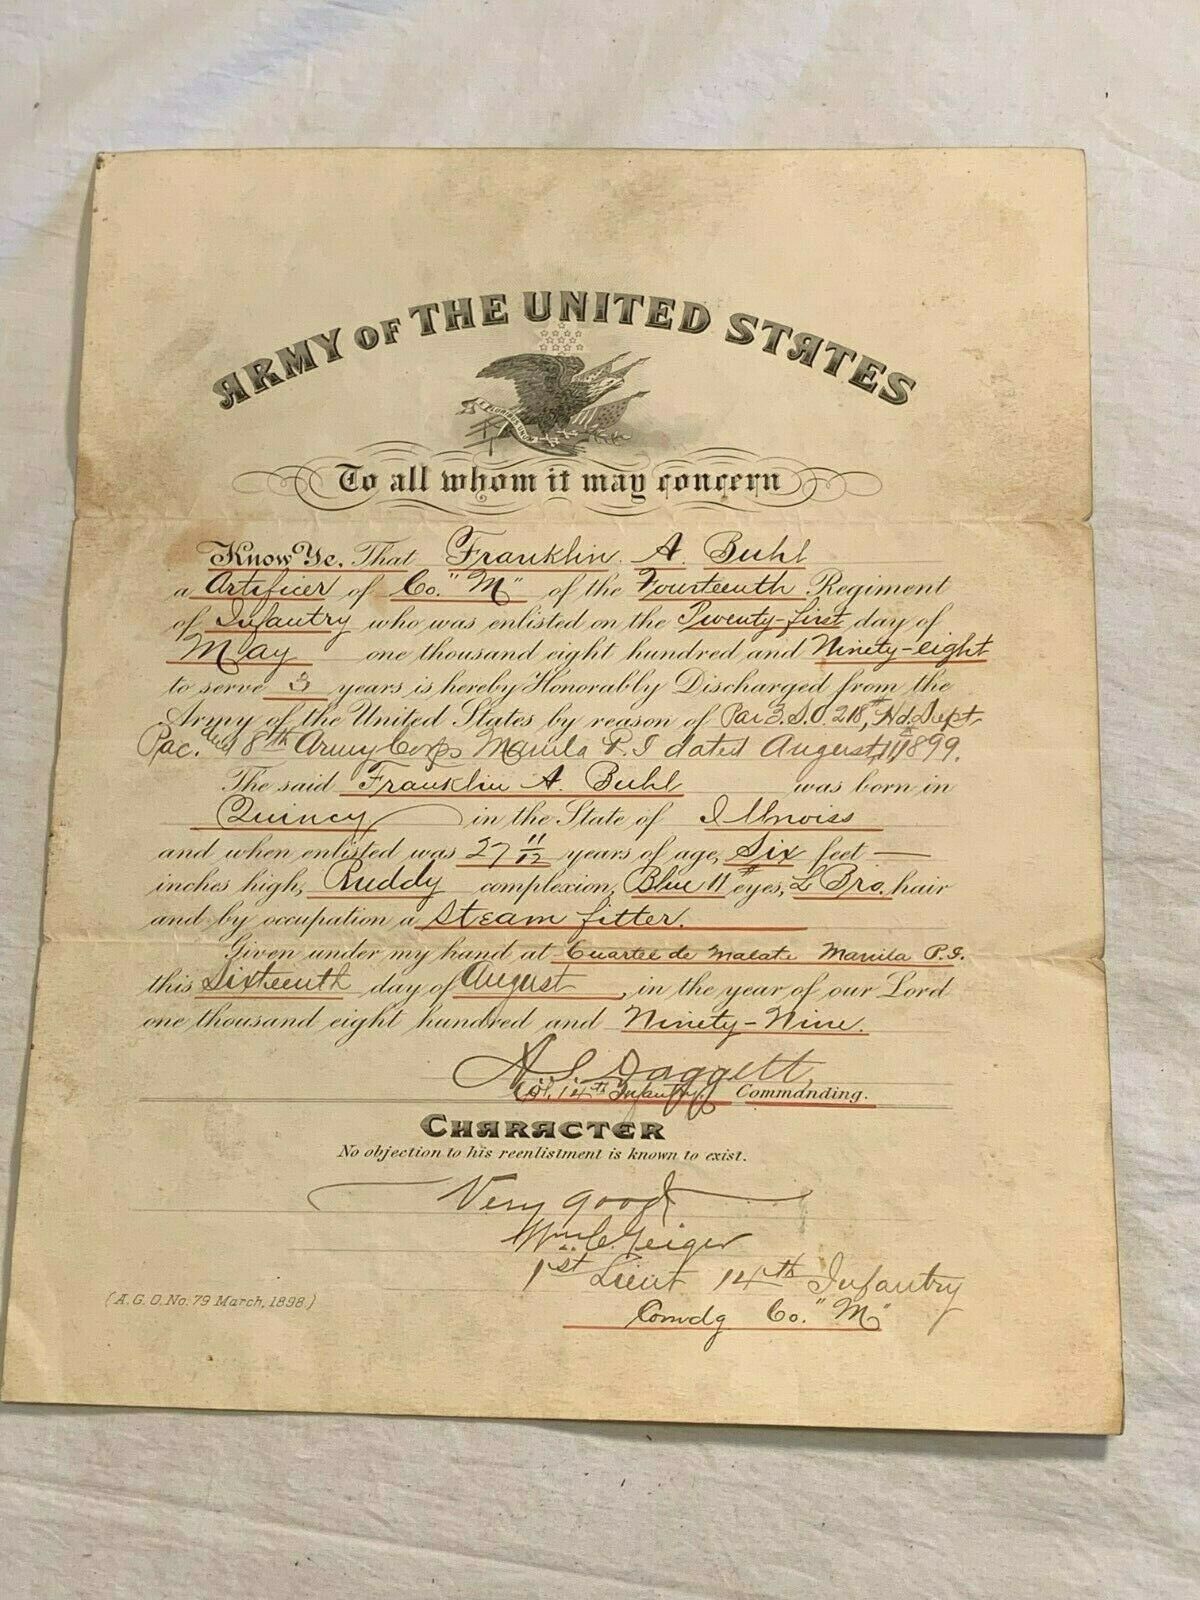 ARMY OF THE UNITED STATES
E PLURIBUS UNUM
To all whom it may concern
Know Ye, That Franklin A. Buhl
a Artificer of Co. "M" of the Fourteenth Regiment
of Infantry who was enlisted on the Twenty-first day of
May one thousand eight hundred and Ninety-eight
to serve 3 years is hereby Honorably Discharged from the
Army of the United States by reason of Par 3. S.O. 218, Hd. Dept
Pac. and 8th Army Corps Manila P.I dated August 11, 1899.
The said Franklin A. Buhl was born in
Quincy in the State of Illinoiss
and when enlisted was 27 11/12 years of age, Six feet —
inches high, Ruddy complexion, Blue 11 eyes, L Bro. hair
and by occupation a Steam fitter.
Given under my hand at Cuartel de Malate Manila P.I.
this Sixteenth day of August, in the year of our Lord
one thousand eight hundred and Ninety-Nine.
A S Daggett,
Col. 14th Infantry. Commanding.
CHARACTER
No objection to his reenlistment is known to exist.
Very good
Wm C. Geiger
1st Lieut 14th Infantry
Comdg Co. "M"
(A.G.O. No. 79 March, 1898.)